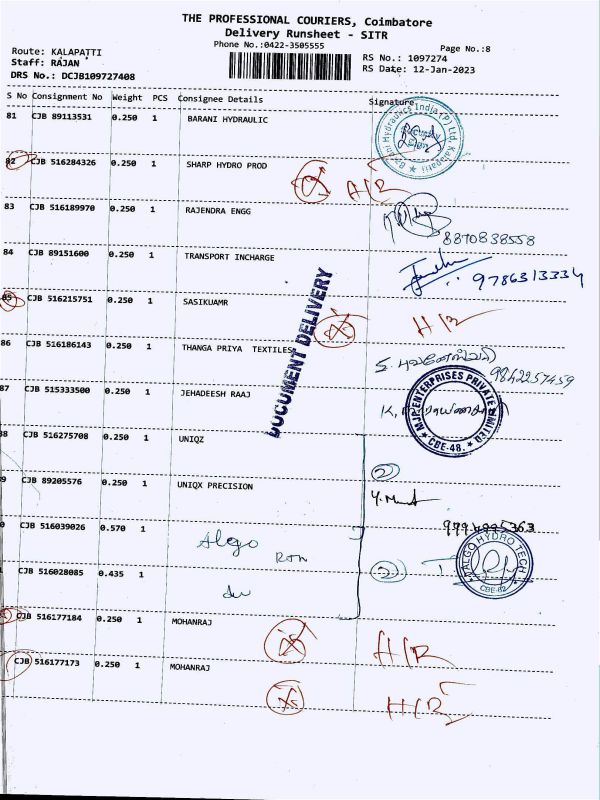 THE PROFESSIONAL COURIERS, Coimbatore
Delivery Runsheet - SITR
Phone No.:0422-3505555
Page No.:8
Route: KALAPATTI
Staff: RAJAN
DRS No.: DCJB109727408
RS No.: 1097274
RS Date: 12-Jan-2023
S No Consignment No Weight PCS Consignee Details Signature
81 CJB 89113531 0.250 1 BARANI HYDRAULIC
Hydraulics India (P) Ltd, Kalapatti
82 CJB 516284326 0.250 1 SHARP HYDRO PROD
83 CJB 516189970 0.250 1 RAJENDRA ENGG
8870838558
84 CJB 89151600 0.250 1 TRANSPORT INCHARGE
9786313334
85 CJB 516215751 0.250 1 SASIKUAMR
DOCUMENT DELIVERY
86 CJB 516186143 0.250 1 THANGA PRIYA TEXTILES
9842257459
87 CJB 515333500 0.250 1 JEHADEESH RAAJ
MJP ENTERPRISES PRIVATE LIMITED
CBE-48.
88 CJB 516275708 0.250 1 UNIQZ
2
9 CJB 89205576 0.250 1 UNIQX PRECISION
0 CJB 516039026 0.570 1 Algo
CJB 516028085 0.435 1 du
2
ALGO HYDRO TECH
CBE-62
CJB 516177184 0.250 1 MOHANRAJ
CJB 516177173 0.250 1 MOHANRAJ